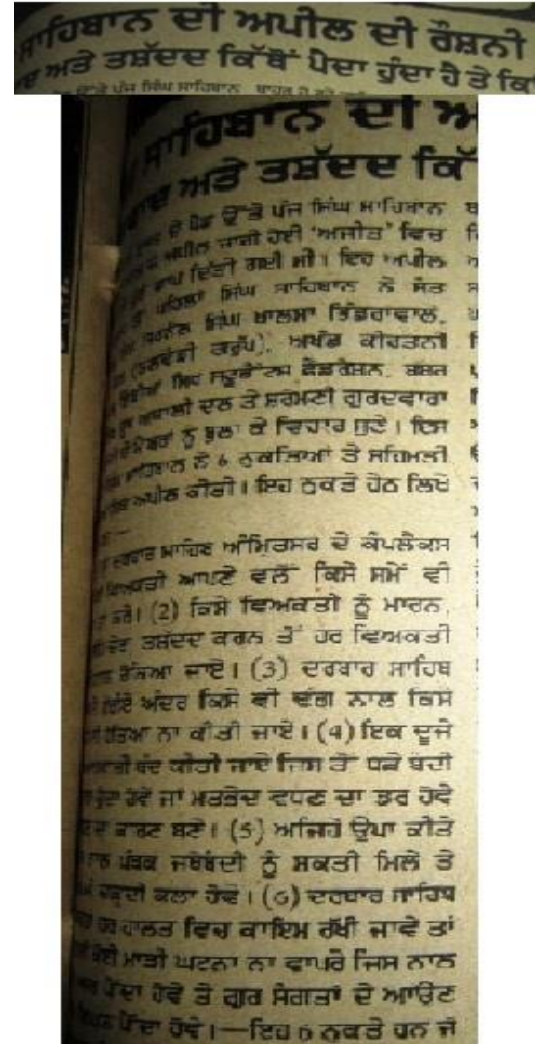 ਸਾਹਿਬਾਨ ਦੀ ਅਪੀਲ ਦੀ ਰੌਸ਼ਨੀ
ਅਤੇ ਤਸ਼ੱਦਦ ਕਿੱਥੋਂ ਪੈਦਾ ਹੁੰਦਾ ਹੈ ਤੇ
ਉੱਤੇ ਪੰਜ ਸਿੰਘ ਸਾਹਿਬਾਨ
ਸਾਹਿਬਾਨ ਦੀ
ਅਤੇ ਤਸ਼ੱਦਦ
ਦੇ ਪੈਡ ਉੱਤੇ ਪੰਜ ਸਿੰਘ ਸਾਹਿਬਾਨ
ਅਪੀਲ ਜਾਰੀ ਹੋਈ 'ਅਜੀਤ' ਵਿਚ
ਛਾਪ ਦਿੱਤੀ ਗਈ ਸੀ। ਇਹ ਅਪੀਲ
ਪਹਿਲਾਂ ਸਿੰਘ ਸਾਹਿਬਾਨ ਨੇ ਸੰਤ
ਜਰਨੈਲ ਸਿੰਘ ਖਾਲਸਾ ਭਿੰਡਰਾਂਵਾਲੇ,
(ਤਲਵੰਡੀ ਗਰੁੱਪ), ਅਖੰਡ ਕੀਰਤਨੀ
ਸਿਖ ਸਟੂਡੈਂਟਸ ਫੈਡਰੇਸ਼ਨ, ਬੱਬਰ
ਅਕਾਲੀ ਦਲ ਤੇ ਸ਼ਰੋਮਣੀ ਗੁਰਦਵਾਰਾ
ਨੂੰ ਬੁਲਾ ਕੇ ਵਿਚਾਰ ਸੁਣੇ। ਇਸ
ਸਾਹਿਬਾਨ ਨੇ 6 ਨੁਕਤਿਆਂ ਤੇ ਸਹਿਮਤੀ
ਅਪੀਲ ਕੀਤੀ। ਇਹ ਨੁਕਤੇ ਹੇਠ ਲਿਖੇ
ਦਰਬਾਰ ਸਾਹਿਬ ਅੰਮ੍ਰਿਤਸਰ ਦੇ ਕੰਪਲੈਕਸ
ਵਿਅਕਤੀ ਆਪਣੇ ਵਲੋਂ ਕਿਸੇ ਸਮੇਂ ਵੀ
ਕਰੇ। (2) ਕਿਸੇ ਵਿਅਕਤੀ ਨੂੰ ਮਾਰਨ,
ਤਸ਼ੱਦਦ ਕਰਨ ਤੋਂ ਹਰ ਵਿਅਕਤੀ
ਰੋਕਿਆ ਜਾਏ। (3) ਦਰਬਾਰ ਸਾਹਿਬ
ਅੰਦਰ ਕਿਸੇ ਵੀ ਢੰਗ ਨਾਲ ਕਿਸੇ
ਹੱਤਿਆ ਨਾ ਕੀਤੀ ਜਾਏ। (4) ਇਕ ਦੂਜੇ
ਬੰਦ ਕੀਤੀ ਜਾਏ ਜਿਸ ਤੋਂ ਧੜੇ ਬੰਦੀ
ਹੋਵੇ ਜਾਂ ਮਤਭੇਦ ਵਧਣ ਦਾ ਡਰ ਹੋਵੇ
ਕਾਰਣ ਬਣੇ। (5) ਅਜਿਹੇ ਉਪਾ ਕੀਤੇ
ਨਾਲ ਪੰਥਕ ਜਥੇਬੰਦੀ ਨੂੰ ਸ਼ਕਤੀ ਮਿਲੇ ਤੇ
ਚੜ੍ਹਦੀ ਕਲਾ ਹੋਵੇ। (6) ਦਰਬਾਰ ਸਾਹਿਬ
ਹਰ ਹਾਲਤ ਵਿਚ ਕਾਇਮ ਰੱਖੀ ਜਾਵੇ ਤਾਂ
ਕੋਈ ਮਾੜੀ ਘਟਨਾ ਨਾ ਵਾਪਰੇ ਜਿਸ ਨਾਲ
ਪੈਦਾ ਹੋਵੇ ਤੇ ਗੁਰ ਸੰਗਤਾਂ ਦੇ ਆਉਣ
ਪੈਂਦਾ ਹੋਵੇ।—ਇਹ 6 ਨੁਕਤੇ ਹਨ ਜੋ